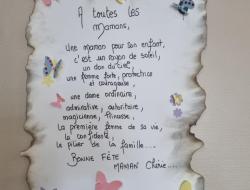 A toutes les
Mamans,
Une maman pour son enfant,
c'est un rayon de soleil,
un don du ciel,
une femme forte, protectrice
et courageuse,
une dame ordinaire,
admirative, autoritaire,
magicienne, Princesse,
La première femme de sa vie,
la confidente,
le pilier de la famille.....
BONNE FÊTE
MAMAN Chérie....